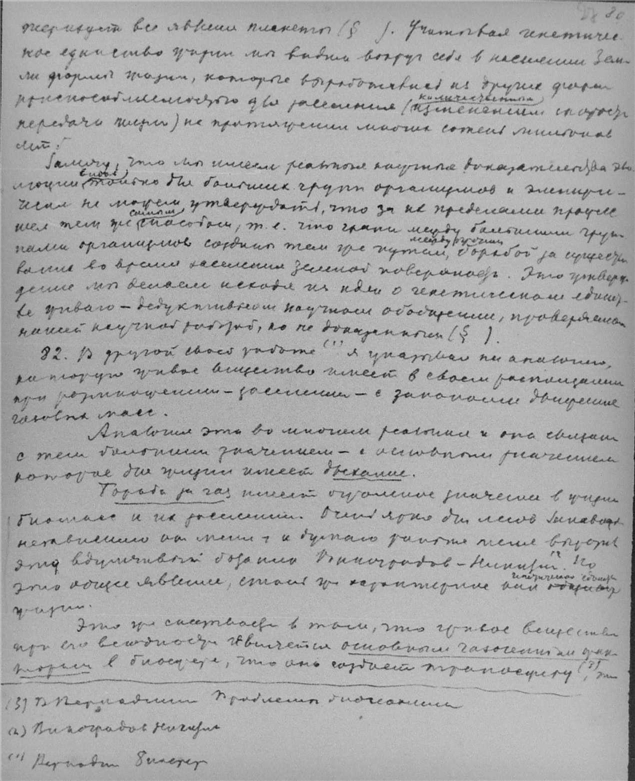 все явления планеты (§ ). Учитывая генетичес-
кое единство жизни мы видим вокруг себя в населении Зем-
ли формы жизни, которые выработались из других форм
приспособляемостью для расселения (количественным изменением скорости
передачи жизни) на протяжении многих сотен миллионов
лет.
Замечу, что мы имеем реальные научные доказательства эво-
люции видов только для больших групп организмов и эмпири-
чески не можем утверждать, что за их пределами процесс
шел тем же самым способом, т.е. что грани между большими груп-
пами организмов созданы тем же путем, борьбой за существо-
вание во время заселения земной поверхности. Это утверж-
дение мы делаем исходя из идеи о генетическом единст-
ве живого – дедуктивном научном обобщении, проверяемом
нашей научной работой, но не доказанным (§ ).
82. В другой своей работе (1) я указывал на аналогию,
которую живое вещество имеет в своем растекании
при размножении – заселении – с законами движения
газовых масс.
Аналогия эта во многом реальная и она связана
с тем большим значением – с основным значением
которое для жизни имеет дыхание.
Борьба за газ имеет огромное значение в жизни
биомасс и их расселении. Очень ярко для лесов Запада
независимо от меня и думаю раньше меня выразил
это вдумчивый ботаник Виноградов-Никитин (2). Но
это общее явление, столь же характерное как генетическое единство
жизни.
Это же сказывается в том, что живое вещество
при его всюдности является основным газогенным фак-
тором в биосфере, что оно создает тропосферу (3),
(3) В Вернадский Проблемы биогеохимии
(2) Виноградов Никитин
(1) Вернадский Биосфера